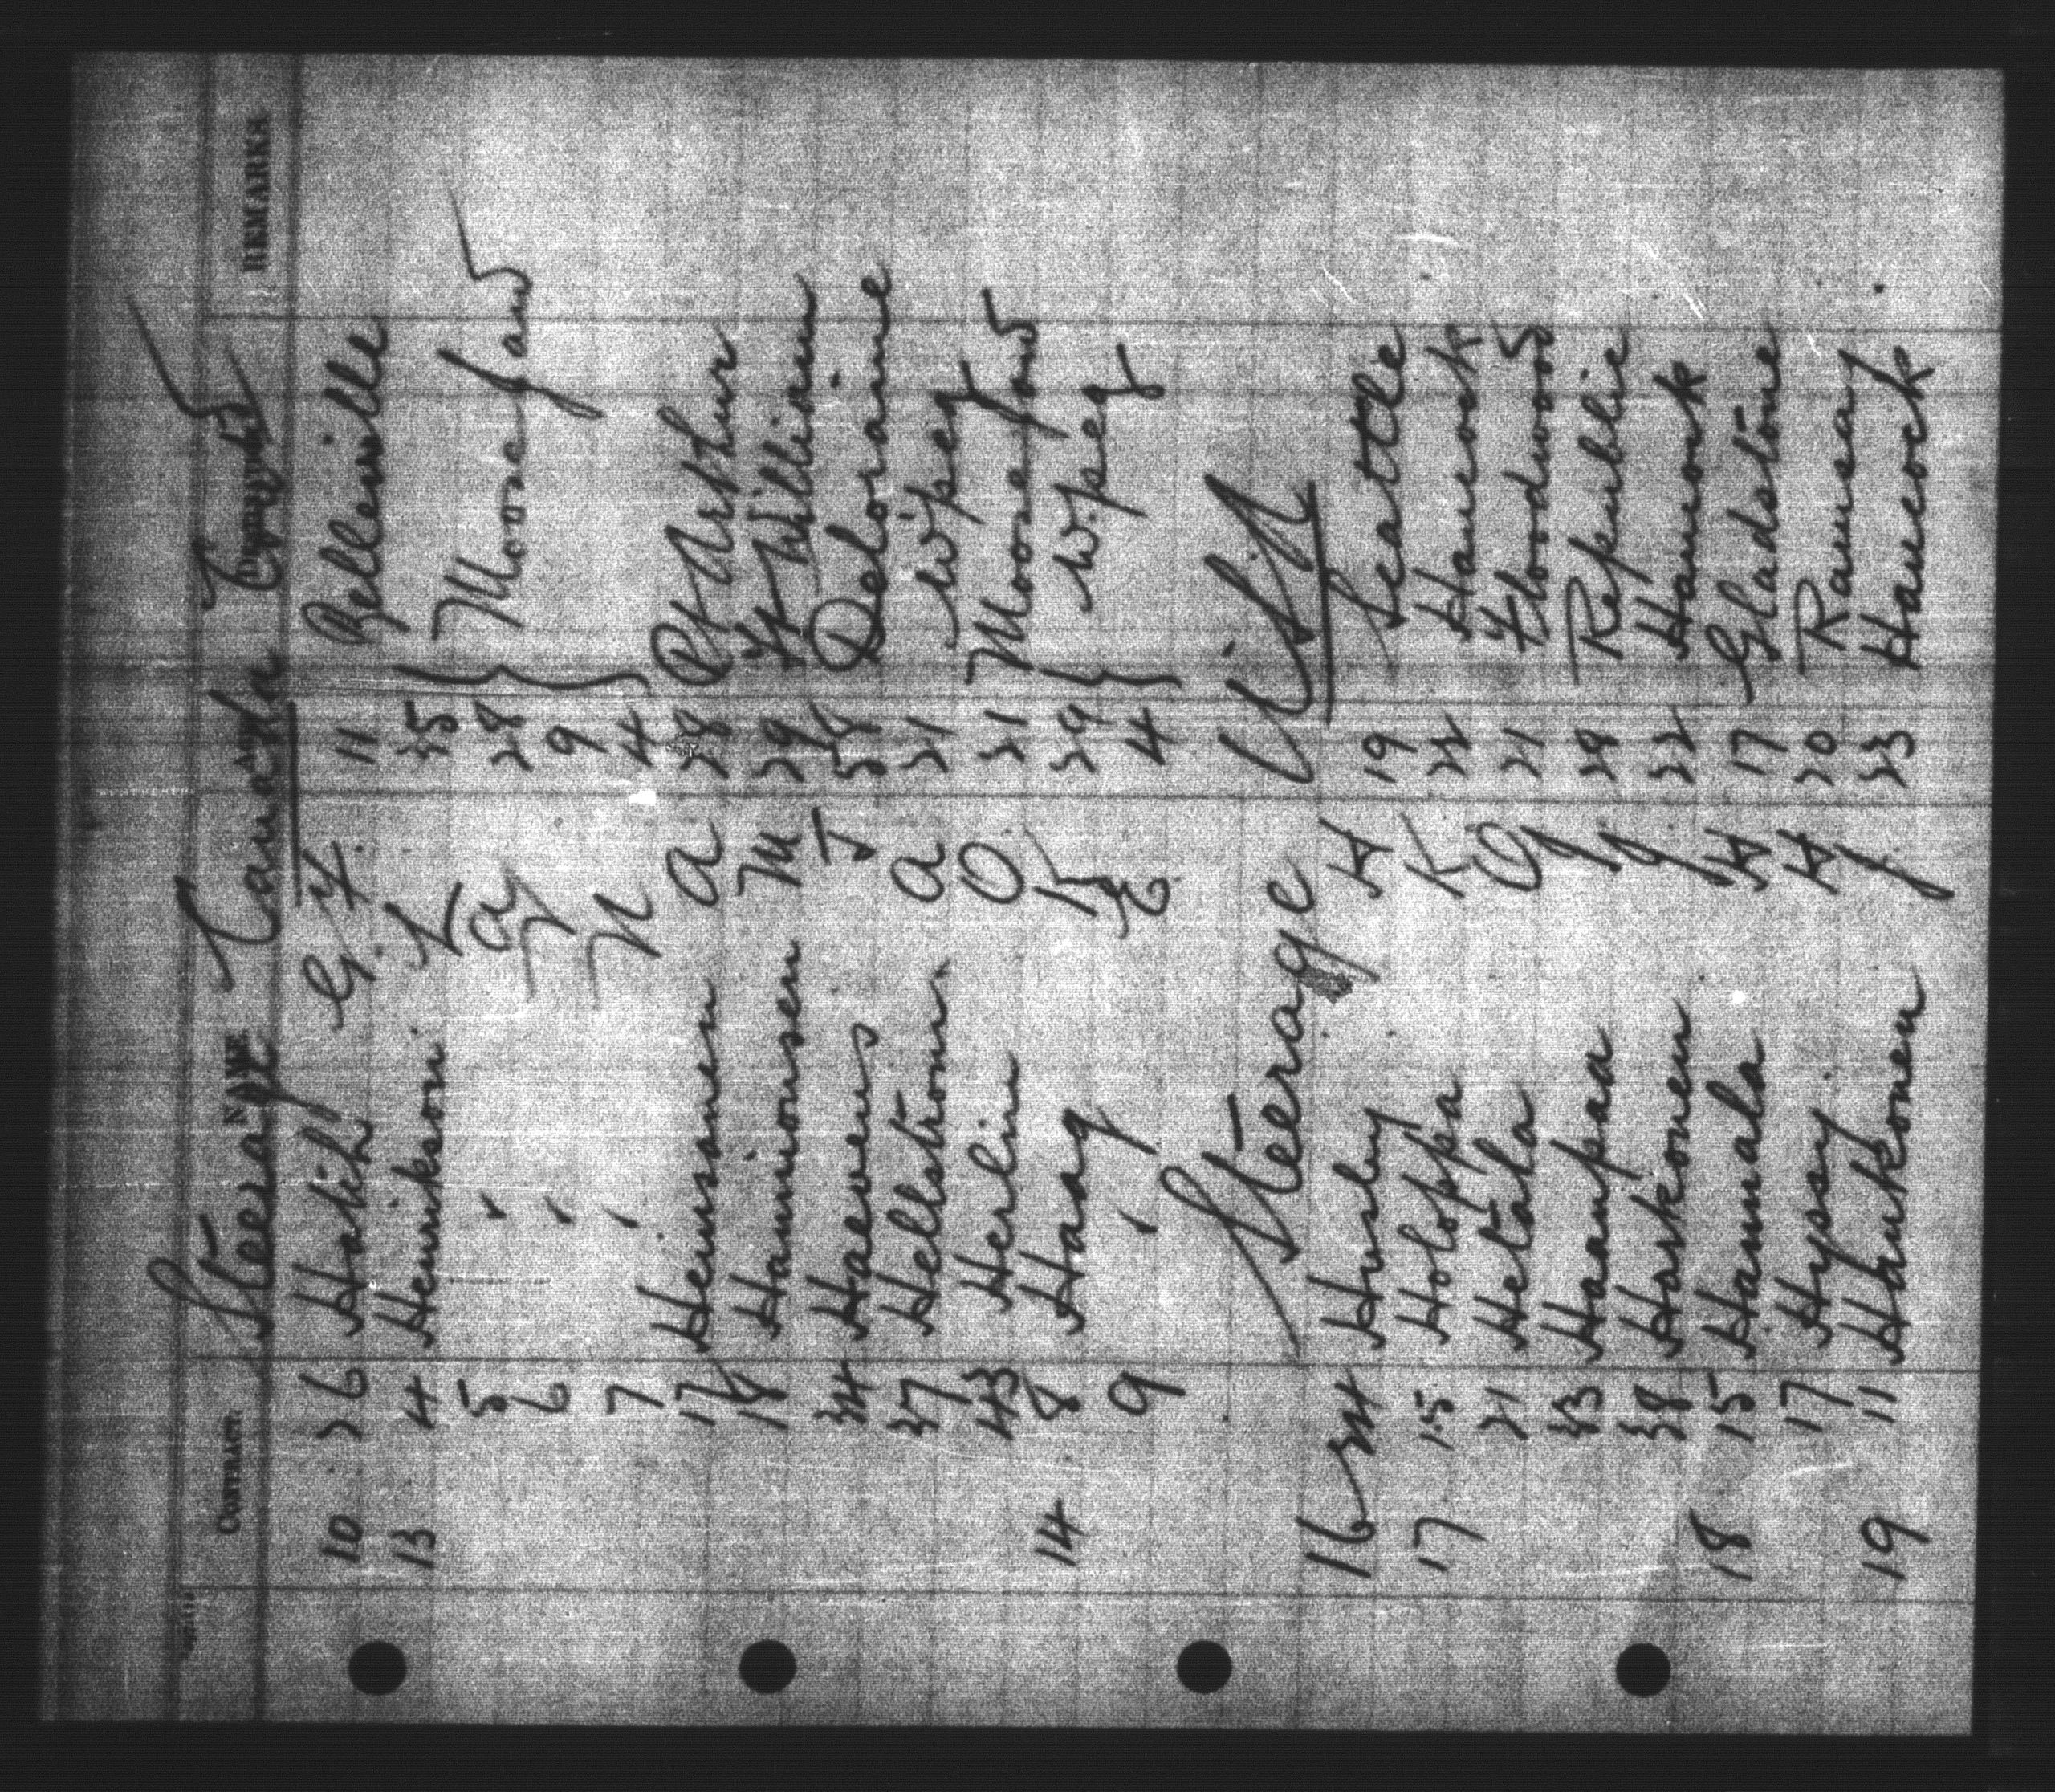 CONTRACT NAME AGE REMARKS
Steerage Canada
10 26 Hatih G. F. 11 Belleville
13 4 Henrikson 35
5 " a 28 Moosejaw
6 " 9
7 " 4
17 Heinonen a 28 Pt Arthur
18 Hanninsen M 29 Ft William
34 Haevens J Deloraine
37 Hellstrom a 21 W'peg
43 Herlin O 21 Moosejaw
14 8 Haag K 29 W.peg
9 " E 4
Steerage U.S.A
16 Husby H 19 Seattle
17 15 Holoppa K 22 Hancock
21 Hetala O 21 Floodwood
33 Haanpaa J 28 Republic
38 Harkonen J 22 Hancock
18 15 Hannala H 17 Gladstone
17 Hyssy H 20 Ramsay
19 11 Haukonen J 23 Hancock